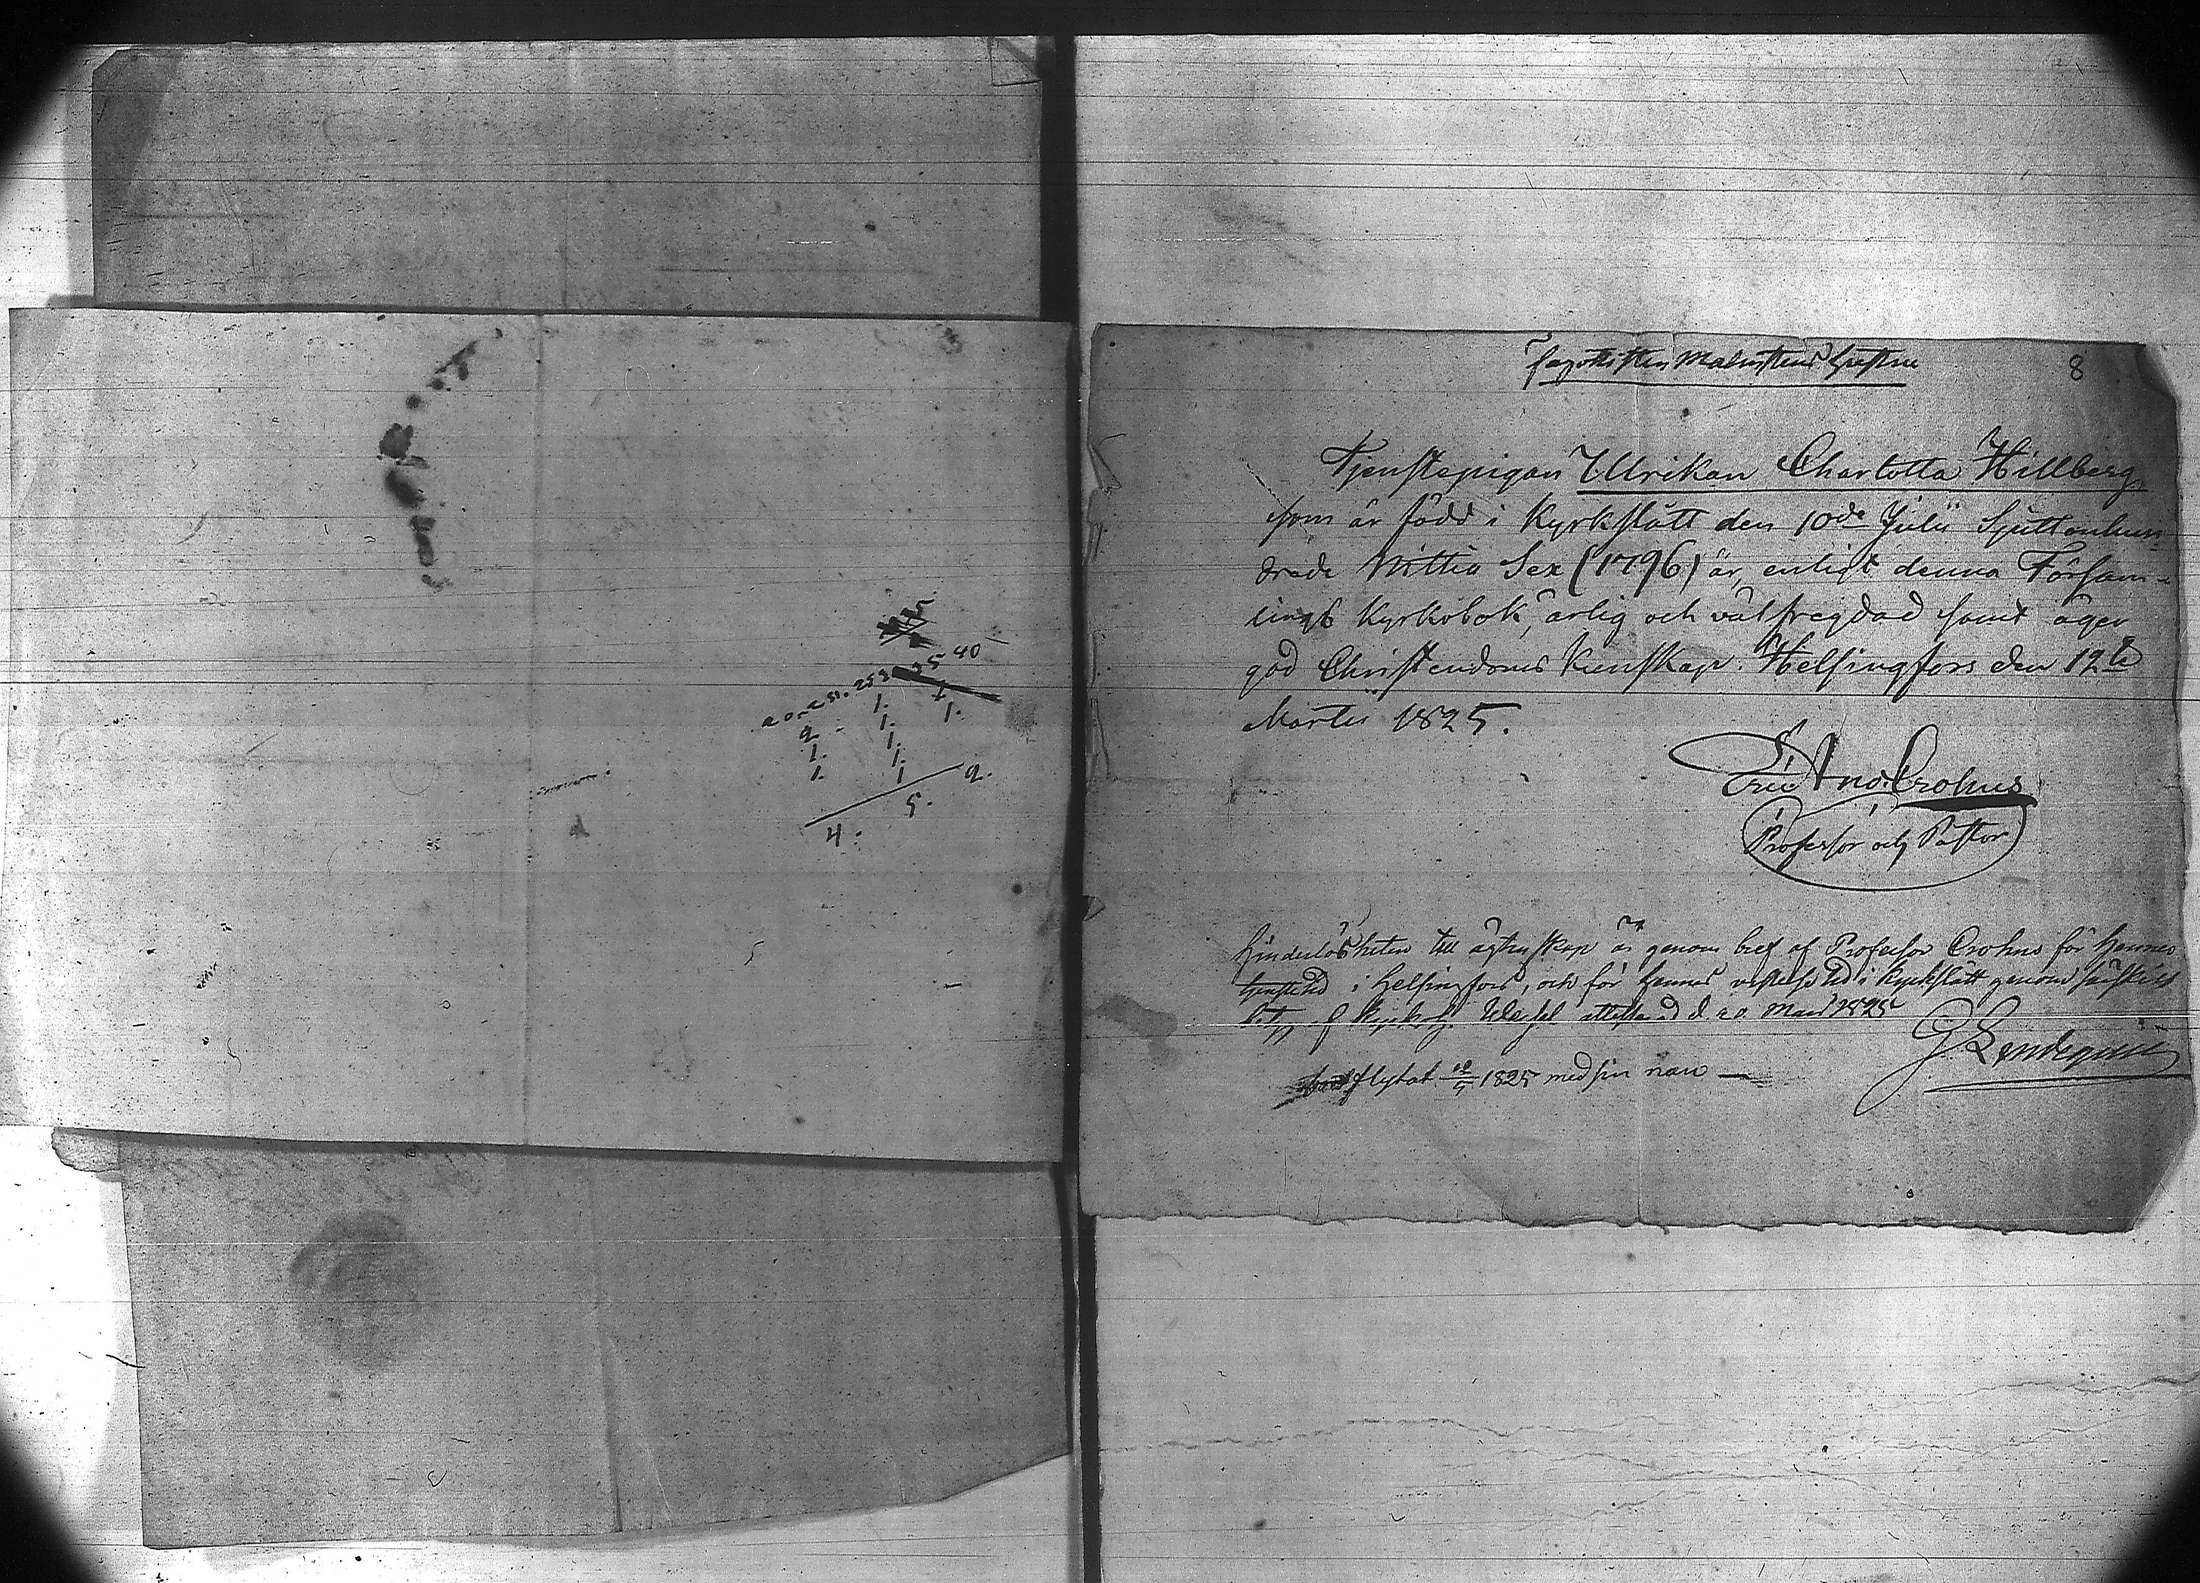 40
1.
1.
1.
2.
1.
1.
1.
1.
1.
2.
5.
4.
8
Tjenstepigan Ulrikan Charlotta Hillberg
som är född i Kyrkslätt den 10de Julii Sjuttonhun-
drade Nittio Sex (1796) är, enligt denna Försam-
lings Kyrkobok, ärlig och välfregdad samt äger
god Christendoms Kunskap. Helsingfors den 12te
Martii 1825.
Crohns
Professor och Pastor
Hinderlösheten till ägtenskap är genom bref af Professor Crohns för hennes
tjenstetid i Helsingfors, och för hennes vistelse tid i Kyrkslätt genom
af attesterad d. 20 Mars 1825
G.
flyttat 1825 med sin man